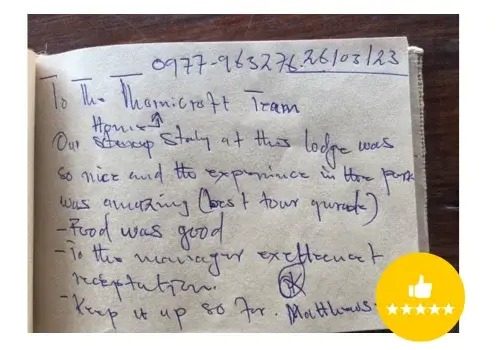 0977-963276. 26/03/23
To The Thornicroft Team
Home
Our stay at this lodge was
so nice and the experience in the park
was amazing (best tour guide)
- Food was good
- To the manager
- Keep it up so far. Matthews.